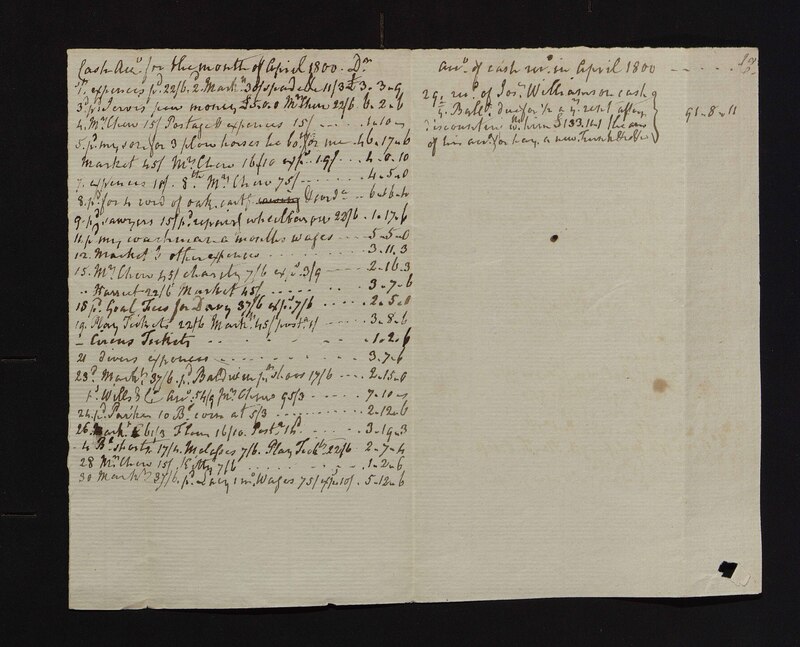 Cash Acc.t for the month of April 1800 Dr
1st. expences pd. 22/6. 2. Mark.t 30/ spade &c 11/3 £ 3 - 3 - 9
3. pd. Jervis pew money £5.0.0 Mrs Chew 22/6 6 - 2 - 6
4. Mrs Chew 15/ Postage & expences 15/ 1 - 10 -
5. pd. my son for 3 plow horses he bot. for me 46 - 17 - 6
Market 45/ Mrs Chew 16/10 exps. 19/ 4 - 0 - 10
7. expences 10/. 8th Mrs Chew 75/ 4 - 5 - 0
8. pd. for 4 cord of oak, cartg. & cord.g 6 - 6 - 
9. pd. sawyers 15/ pd. repairg wheelbarrow 22/6 1 - 17 - 6
11. pd. my coachman a months wages 5 - 5 - 0
12. Market & other expences 3 - 11 - 3
15. Mrs Chew 45/ charity 7/6 exps. 3/9 2 - 16 - 3
" Harriet 22/6 Market 45/ 3 - 7 - 6
18 pd. Goal Fees for Davy 37/6 exps. 7/6 2 - 5 - 0
19. Play Tickets 22/6 Mark.t 45/ post.e 1/ 3 - 8 - 6
- Circus Tickets 1 - 2 - 6
21 divers expences 3 - 7 - 6
23d. Mark.t 37/6 pd. Baldwin pr. shoes 17/6 2 - 15 - 0
pd. Wills & Co. acct. 54/9 Mrs Chew 95/3 7 - 10 -
24. pd. Parker 10 Bs. corn at 5/3 2 - 12 - 6
26. Mark.t 61/3 Flour 16/10. Post.e 1/2 3 - 19 - 3
4 Bs. shorts 17/4. Molasses 7/6. Play Tick.ts 22/6 2 - 7 - 4
28 Mrs Chew 15/. Kitty 7/6 1 - 2 - 6
30 Mark.t 37/6. pd. Lucy 1 mo. Wages 75/ exps. 10/. 5 - 12 - 6
acct. of cash recd. in April 1800
29. recd. of Jos. Williamson cash
Ball. due for rent after
discounting with him £133.14.1 the am.
of his acct. for
91 - 8 - 11